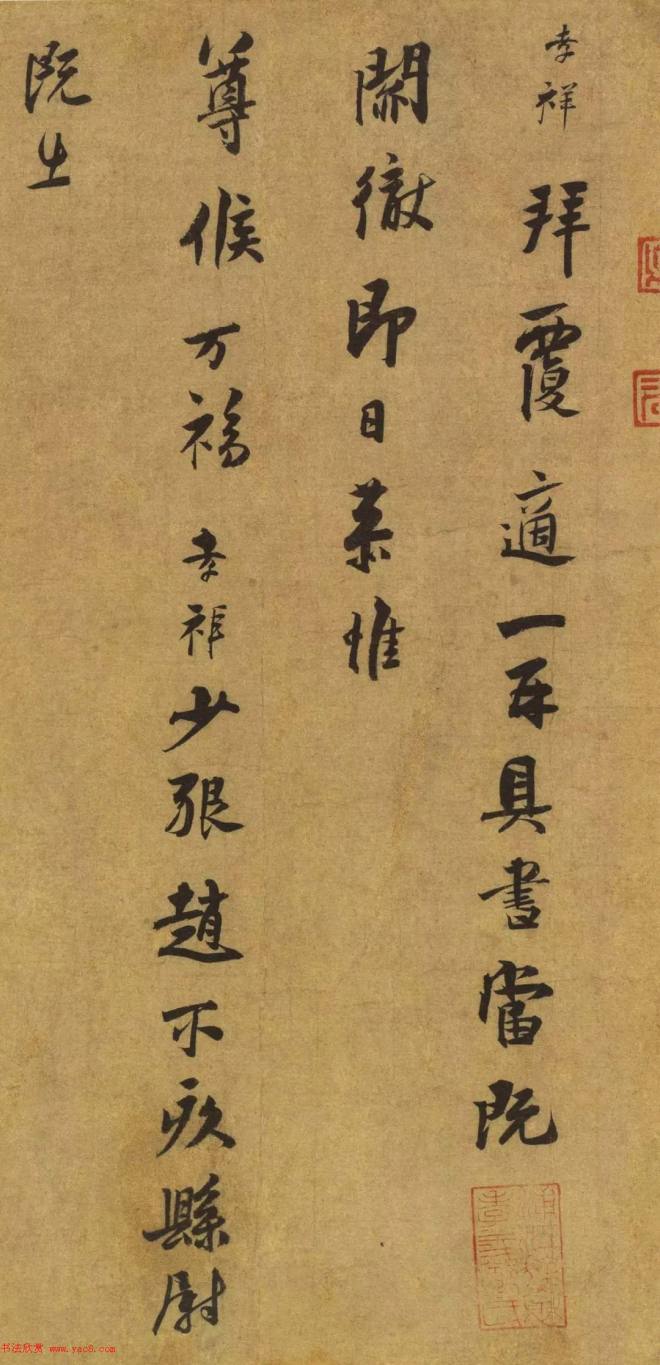 孝祥拜覆適一再具書當既
關徹即日恭惟
尊候万福孝祥少懇趙不疚縣尉
既出
书法欣赏 www.yac8.com